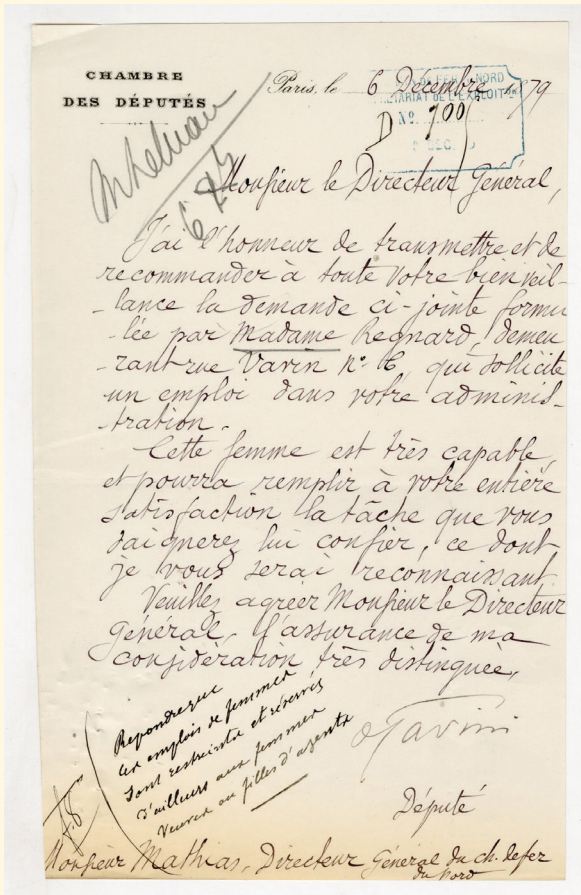 CHAMBRE
DES DÉPUTÉS
Paris, le 6 Décembre 1879
DE FER DU NORD
SECRÉTARIAT DE L'EXPLOITON
D No. 700
DEC.
6 X
Monsieur le Directeur Général,
J'ai l'honneur de transmettre et de
recommander à toute votre bienveil-
-lance la demande ci-jointe formu
-lée par Madame Regnard, demeu
-rant rue Vavin No 16, qui sollicite
un emploi dans votre adminis-
-tration.
Cette femme est très capable,
et pourra remplir à votre entière
satisfaction la tâche que vous
daignerez lui confier, ce dont
je vous serai reconnaissant.
Veuillez agréer Monsieur le Directeur
Général, l'assurance de ma
considération très distinguée,
Répondre que
les emplois de femmes
sont restreints et réservés
d'ailleurs aux femmes
veuves ou filles d'agents
Tavini
Député
Monsieur Mathias, Directeur Général du ch. de fer
du Nord